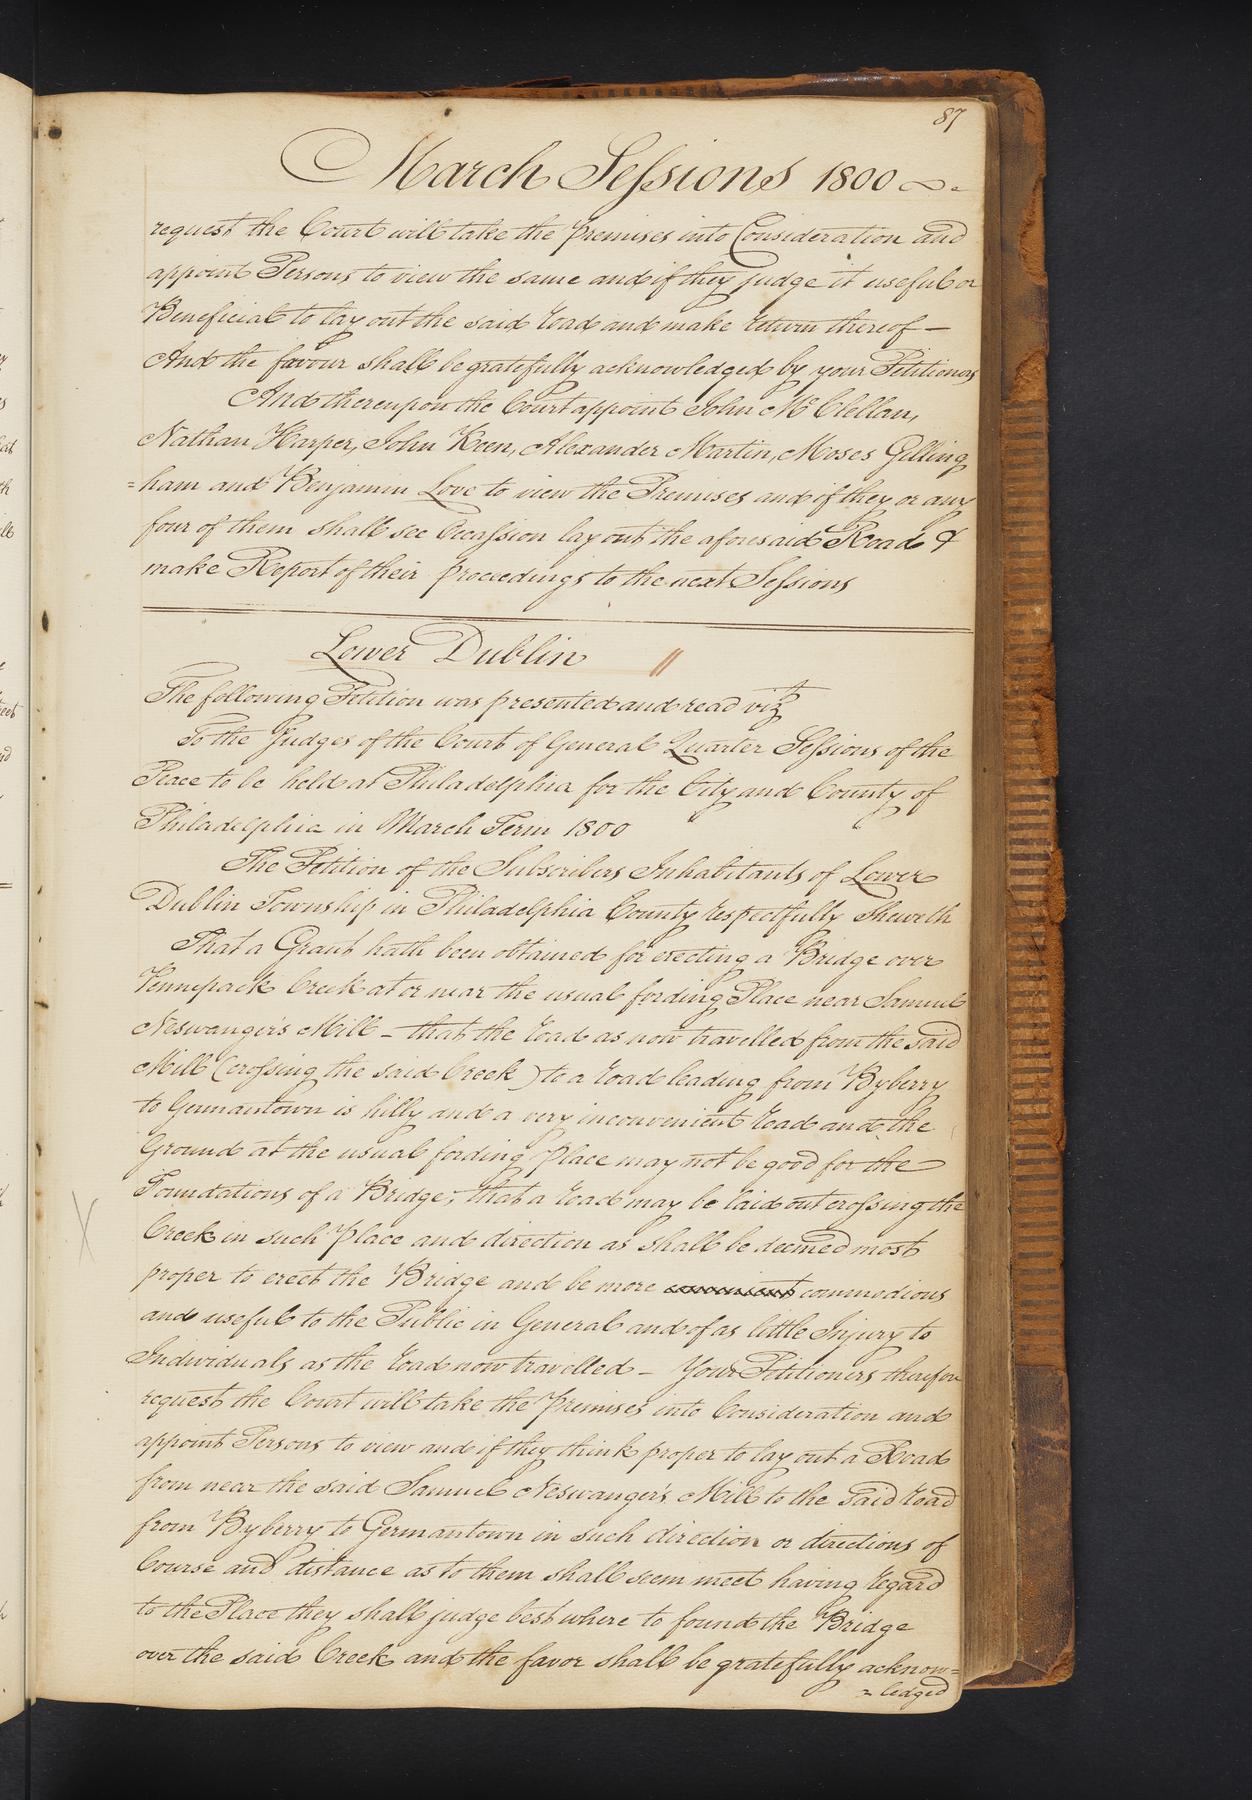 87
March Sessions 1800
request the Court will take the Premises into Consideration and
appoint Persons to view the same and if they judge it useful or
Beneficial to lay out the said Road and make return thereof —
And the favour shall be gratefully acknowledged by your Petitioners
And thereupon the Court appoint John Mc Clellan,
Nathan Harper, John Keen, Alexander Martin, Moses Gilling
=ham and Benjamin Love to view the Premises and if they or any
four of them shall see Occassion lay out the aforesaid Road &
make Report of their proceedings to the next Sessions
Lower Dublin //
The following Petition was presented and read viz
To the Judges of the Court of General Quarter Sessions of the
Peace to be held at Philadelphia for the City and County of
Philadelphia in March Term 1800
The Petition of the Subscribers Inhabitants of Lower
Dublin Township in Philadelphia County respectfully Sheweth
That a Grant hath been obtained for erecting a Bridge over
Pennepack Creek at or near the usual fording Place near Samuel
Neswanger's Mill – that the road as now travelled from the said
Mill (crossing the said Creek) to a road leading from Byberry
to Germantown is hilly and a very inconvenient road and the
Ground at the usual fording place may not be good for the
Foundations of a Bridge; that a road may be laid out crossing the
Creek in such place and direction as shall be deemed most
X
proper to erect the Bridge and be more convenient commodious
and useful to the Public in General and of as little Injury to
Individuals as the road now travelled – Your Petitioners therefore
request the Court will take the Premises into Consideration and
appoint Persons to view and if they think proper to lay out a Road
from near the said Samuel Neswanger's Mill to the said road
from Byberry to Germantown in such direction or directions of
Course and distance as to them shall seem meet having regard
to the Place they shall judge best where to found the Bridge
over the said Creek and the favor shall be gratefully acknow=
= ledged